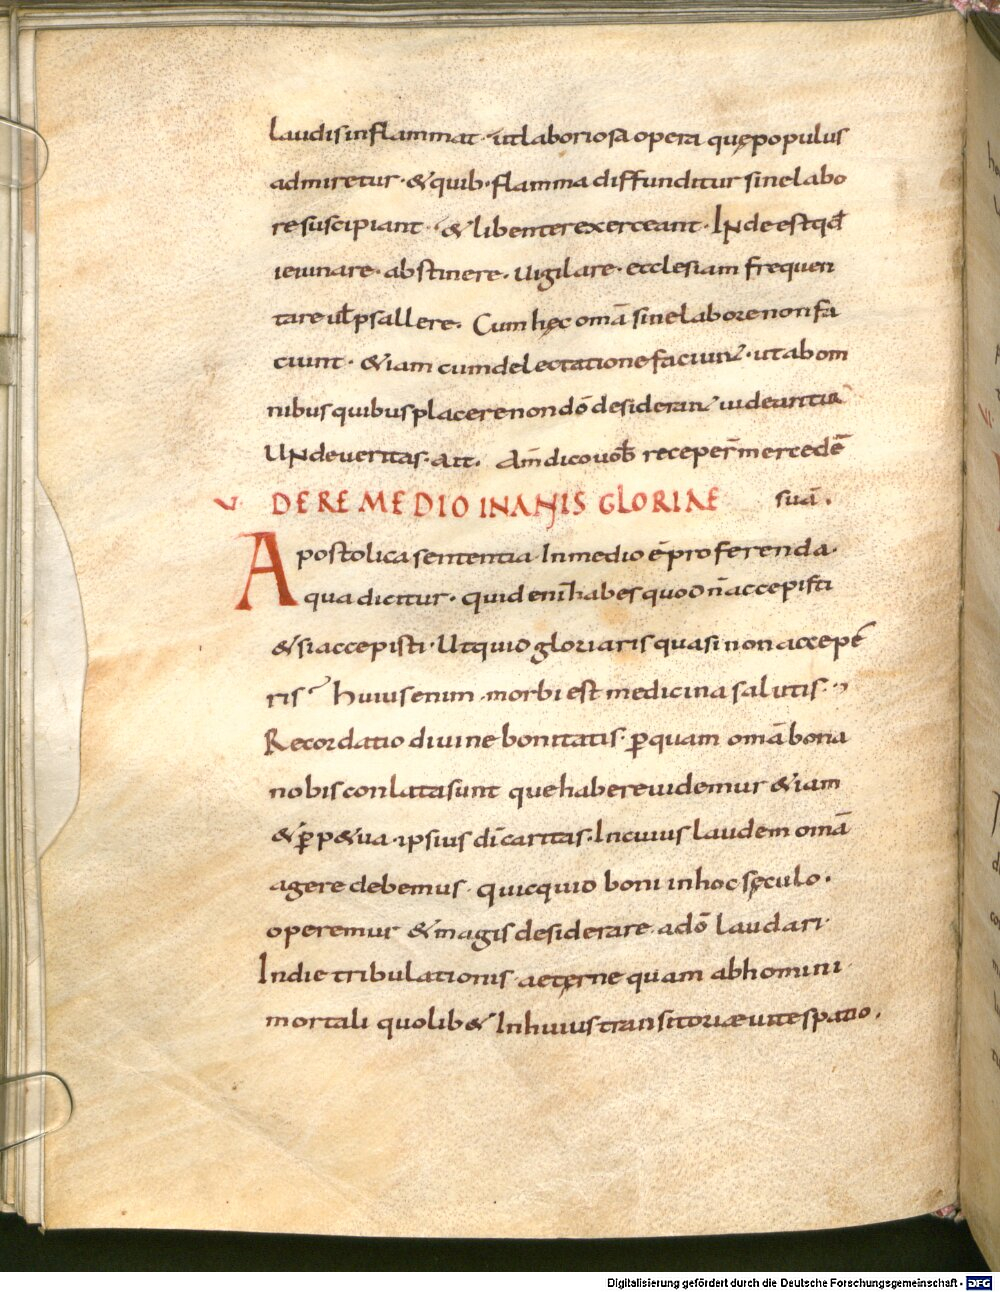 laudis inflammat · ut laboriosa opera quę populus
admiretur · & quib· flamma diffunditur sine labo
re suscipiant · & libenter exerceant · Inde est qđ
ieiunare · abstinere · uigilare · ecclesiam frequen
tare uƚ psallere · Cum hęc omā sine labore non fa
ciunt · &iam cum delectatione faciunt · ut ab om
nibus quibus placere non dō desiderant uideantur
Unde ueritas · ait · Am̄ dico uob̄ receper̄ mercedē
V· DE REMEDIO INANIS GLORIAE suā ·
Apostolica sententia In medio ē proferenda ·
qua dicitur · quid enī habes quod n̄ accepisti
& si accepisti · Ut quid gloriaris quasi non accepe
ris? huius enim morbi est medicina salutis ·
Recordatio diuine bonitatis · ꝑ quam omā bona
nobis conlata sunt que habere uidemur &iam
& ꝑp&ua · ipsius dī caritas · In cuius laudem omā
agere debemus · quicquid boni in hoc sęculo ·
operemur & magis desiderare a dō laudari ·
In die tribulationis · aetęrne quam ab homini
mortali quolib& In huius transitoriae uite spatio ·
Digitalisierung gefördert durch die Deutsche Forschungsgemeinschaft - DFG